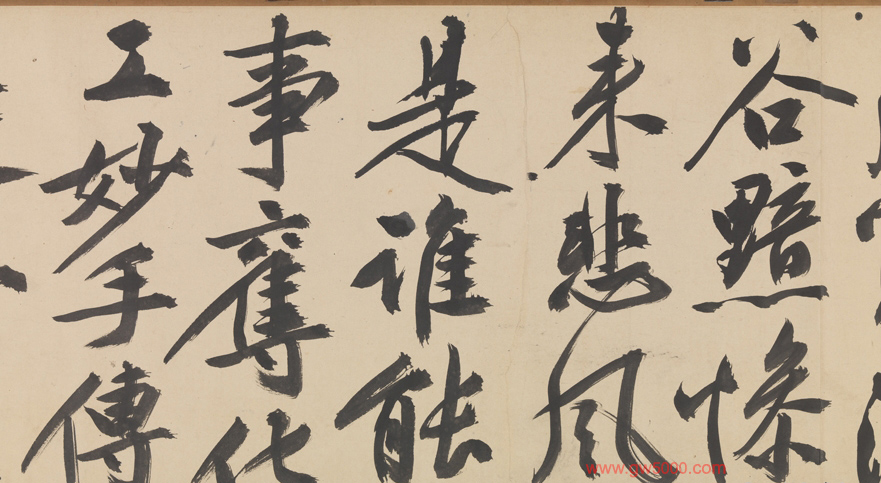 谷黯惨
来悲风
是谁能
事奪化
工妙手傳
www.gw5000.com